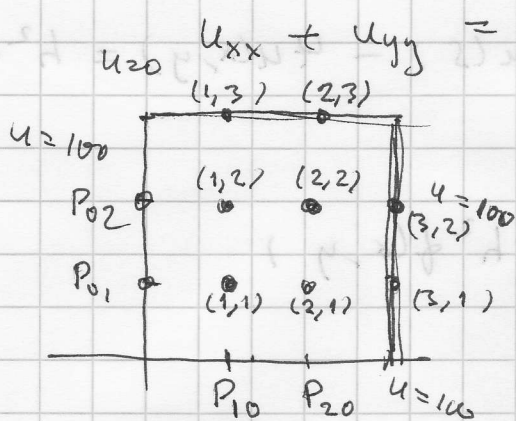 u_xx + u_yy =
u=0
(1,3) (2,3)
u=100
(1,2) (2,2)
P_02
u=100
(3,2)
P_01
(1,1) (2,1) (3,1)
P_10 P_20 u=100